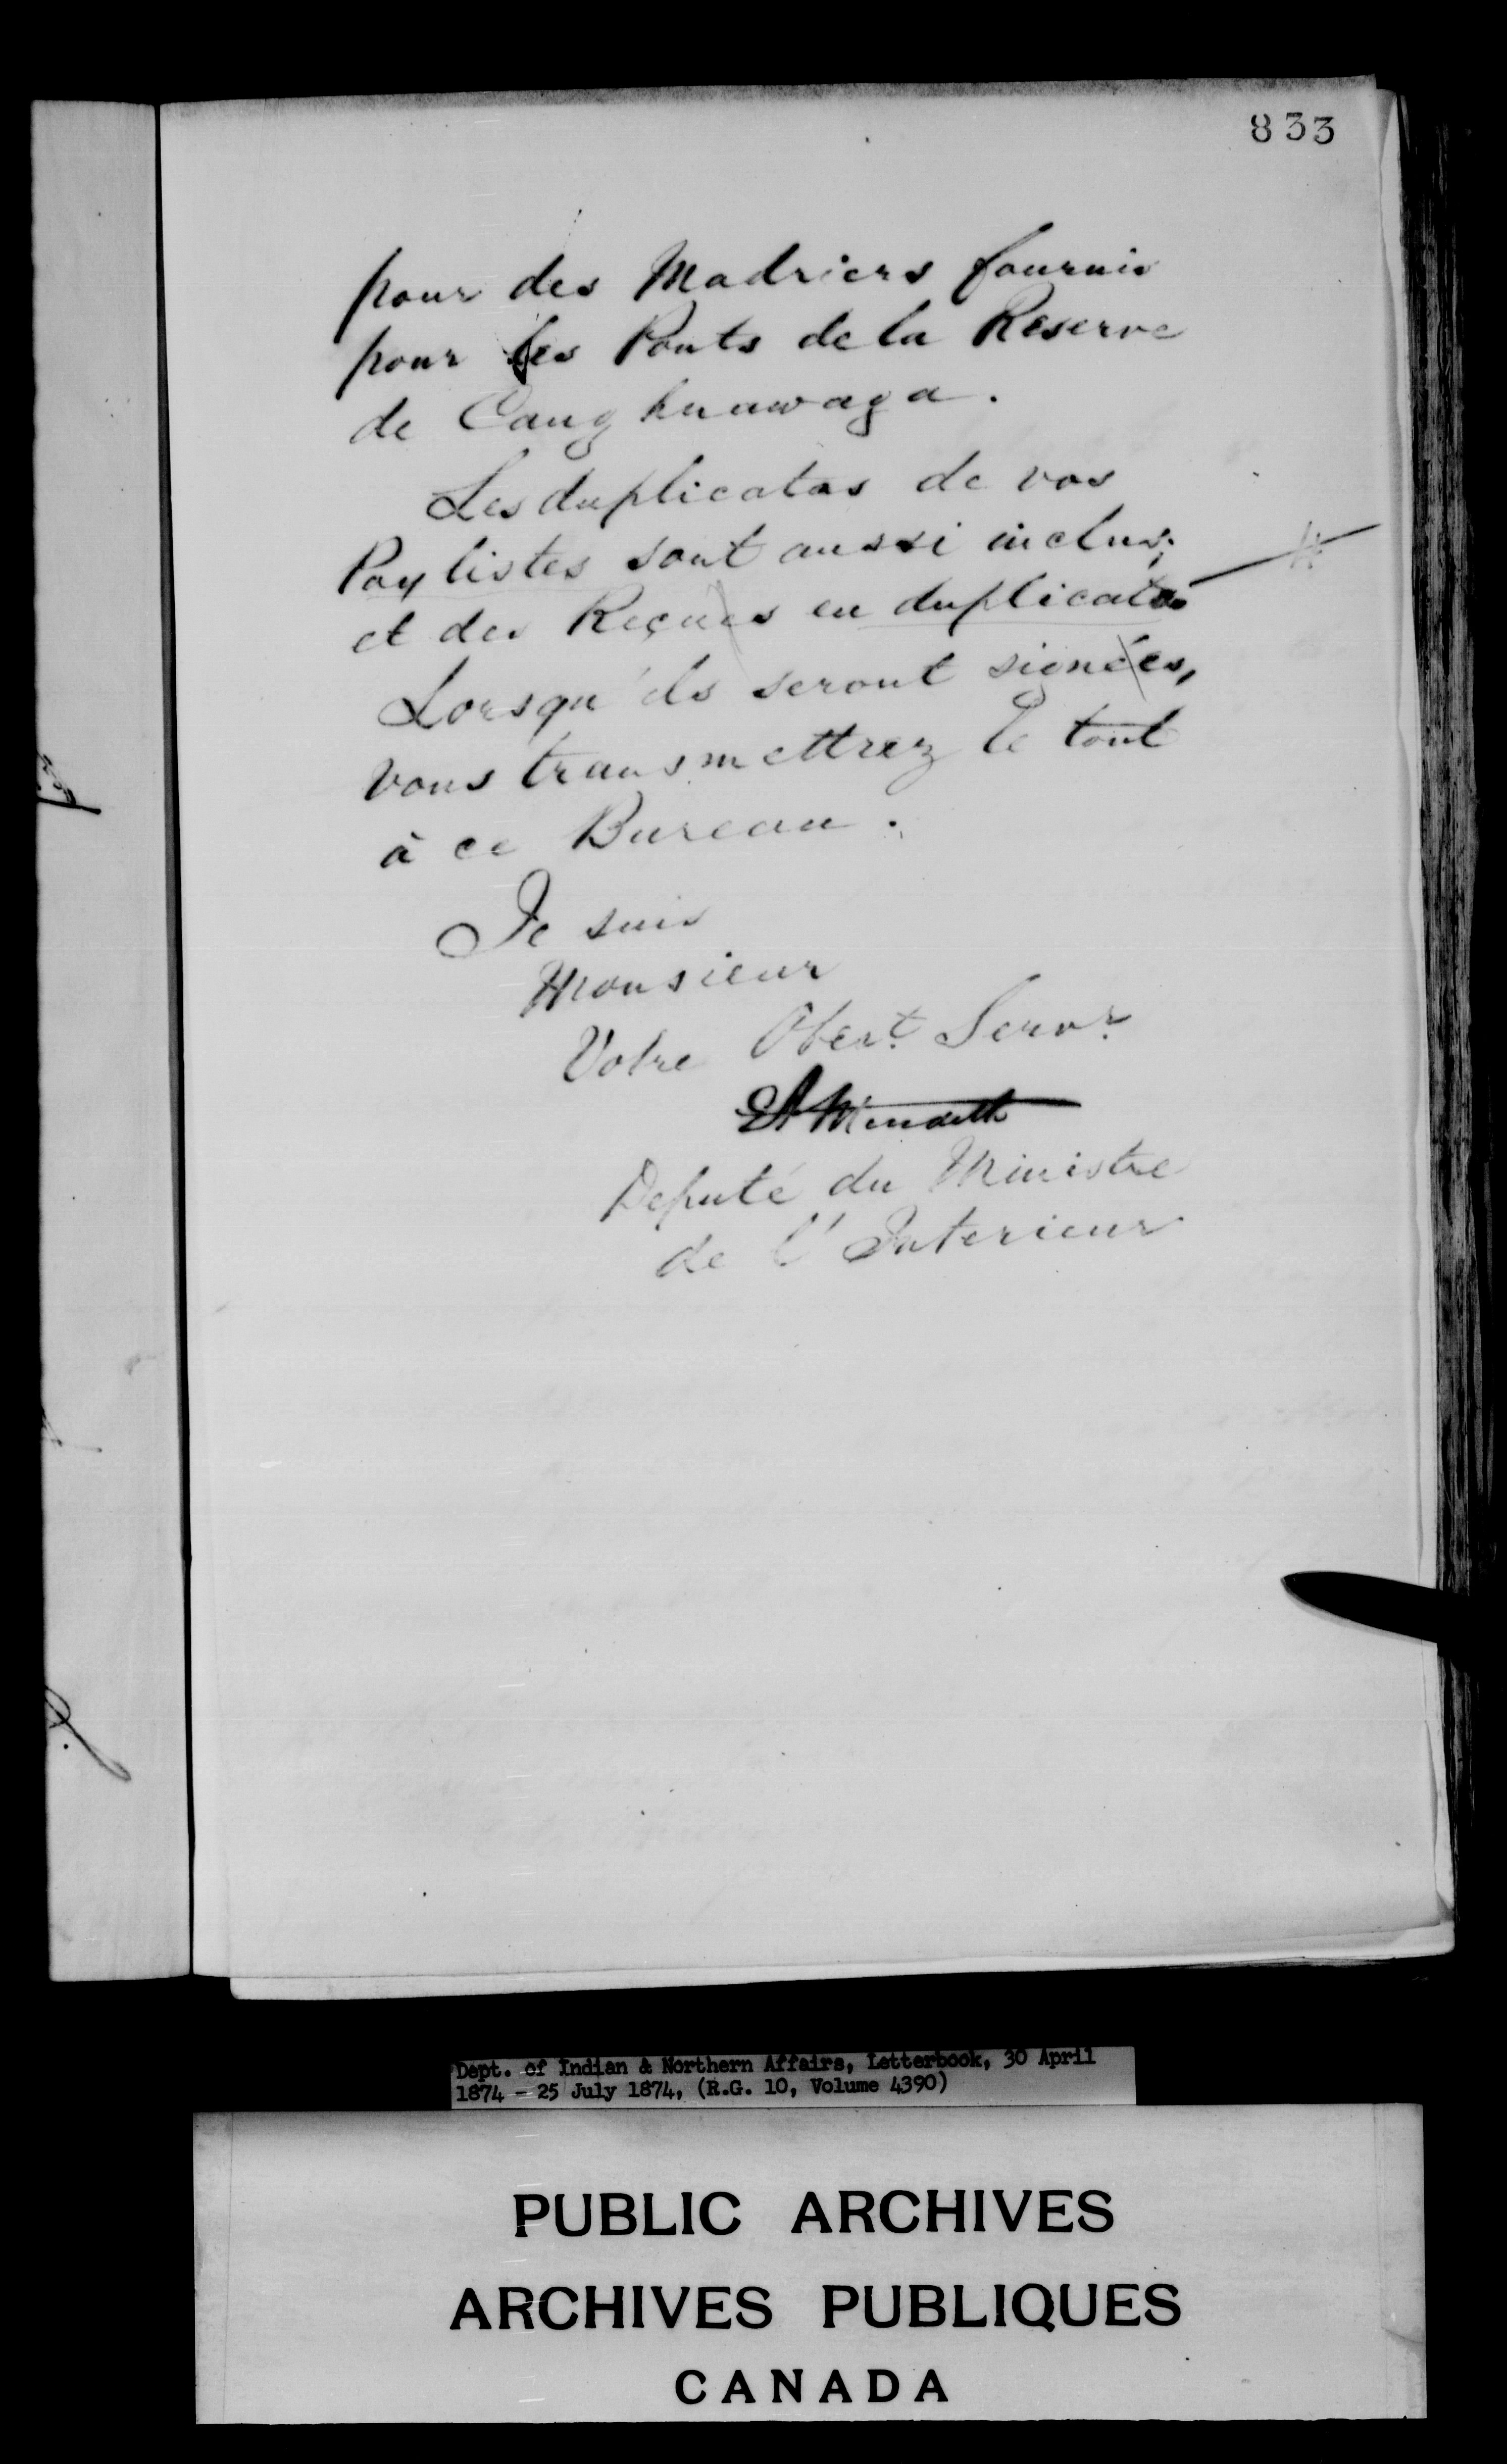 833
pour des Madriers fournis
pour les Ponts de la Reserve
de Caughnawaga.
Les duplicatas de vos
Paylistes sont aussi inclus;
et des Reçues en duplicatas
Lorsqu'ils seront signées,
vous transmettrez le tout
à ce Bureau.
Je suis
Monsieur
Votre Obeist. Servr.
EA Meredith
Deputé du Ministre
de l'Interieur
Dept. of Indian & Northern Affairs, Letterbook, 30 April
1874 - 25 July 1874, (R.G. 10, Volume 4390)
PUBLIC ARCHIVES
ARCHIVES PUBLIQUES
CANADA